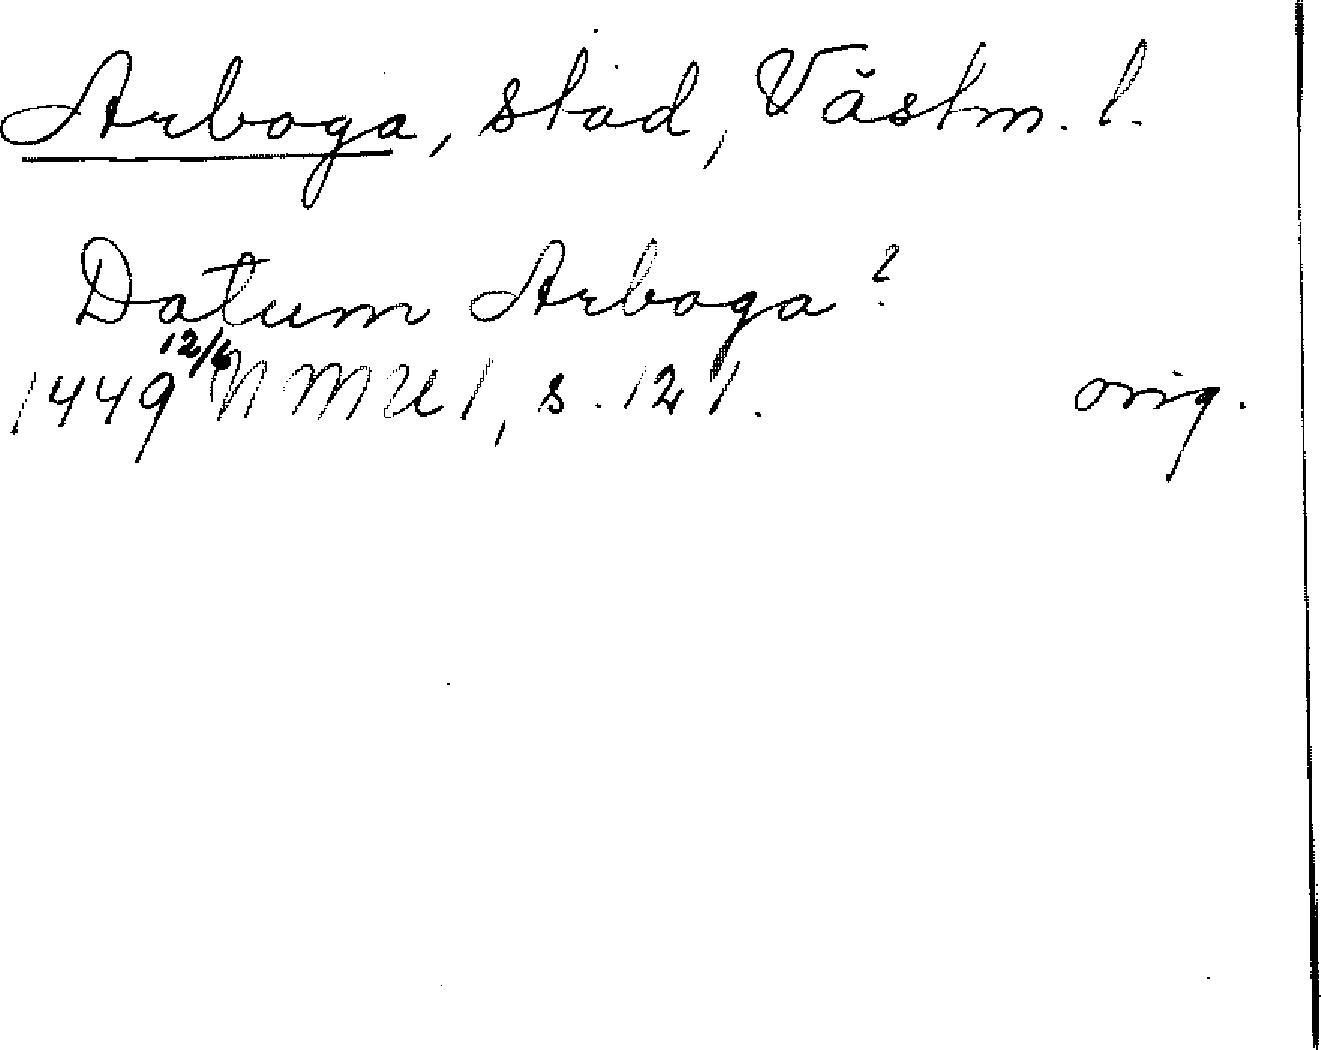 Arboga, stad, Västm. l.
Datum Arboga?
1449 12/6 NMU 1, s. 121. orig.